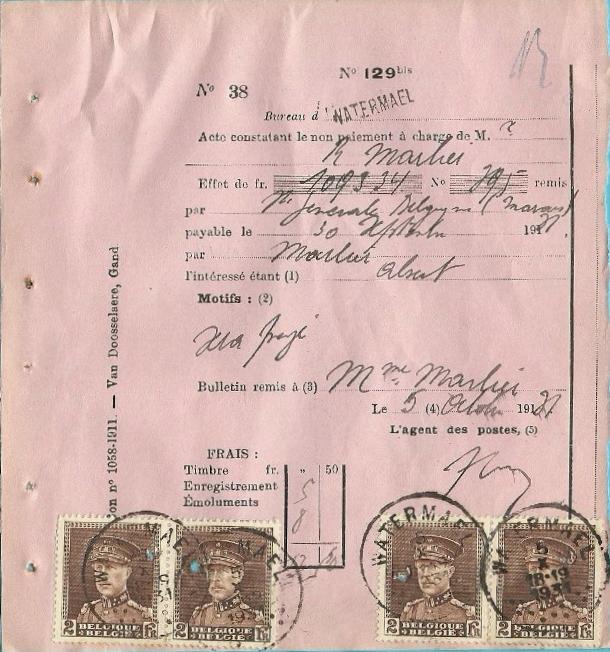 Nº 129bis
Nº 38
Bureau d WATERMAEL
Acte constatant le non paiement à charge de M. r
R Marlier
Effet de fr. 1093 34 Nº 795 remis
par Sté Générale Belgique
payable le 30 Septembre 19
par Marlier
l'intéressé étant (1) absent
Motifs : (2)
sera payé
Bulletin remis à (3) Mme Marlier
Le 5 (4) Octobre 19
L'agent des postes, (5)
FRAIS :
Timbre fr. " 50
Enregistrement 5
Émoluments 8
on nº 1058-1911. — Van Doosselaere, Gand
WATERMAEL
WATERMAEL
WATERMAEL
5 X 18-19 1931
2 BELGIQUE BELGIË Fr
2 BELGIQUE BELGIË Fr
2 BELGIQUE BELGIË Fr
2 BELGIQUE BELGIË Fr